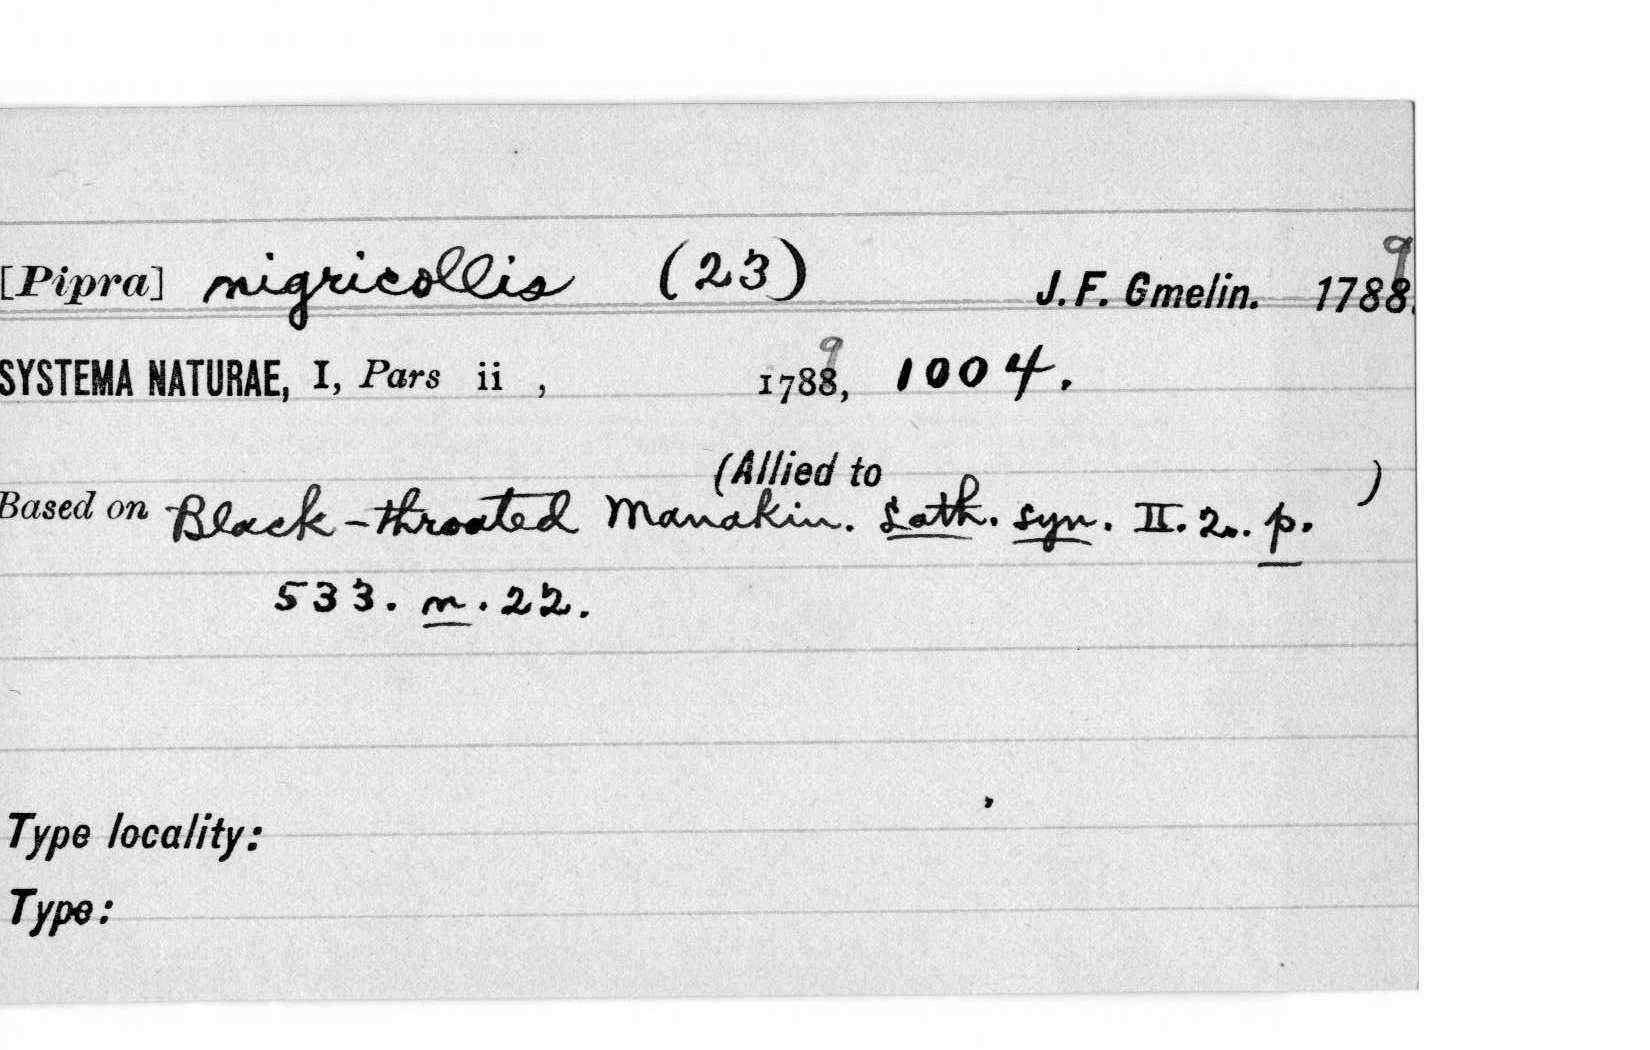 [Pipra] nigricollis (23) J. F. Gmelin. 1788. 9
SYSTEMA NATURAE, I, Pars ii , 1788, 9 1004.
(Allied to )
Based on Black-throated Manakin. Lath. syn. II. 2. p.
533. n. 22.
Type locality:
Type: